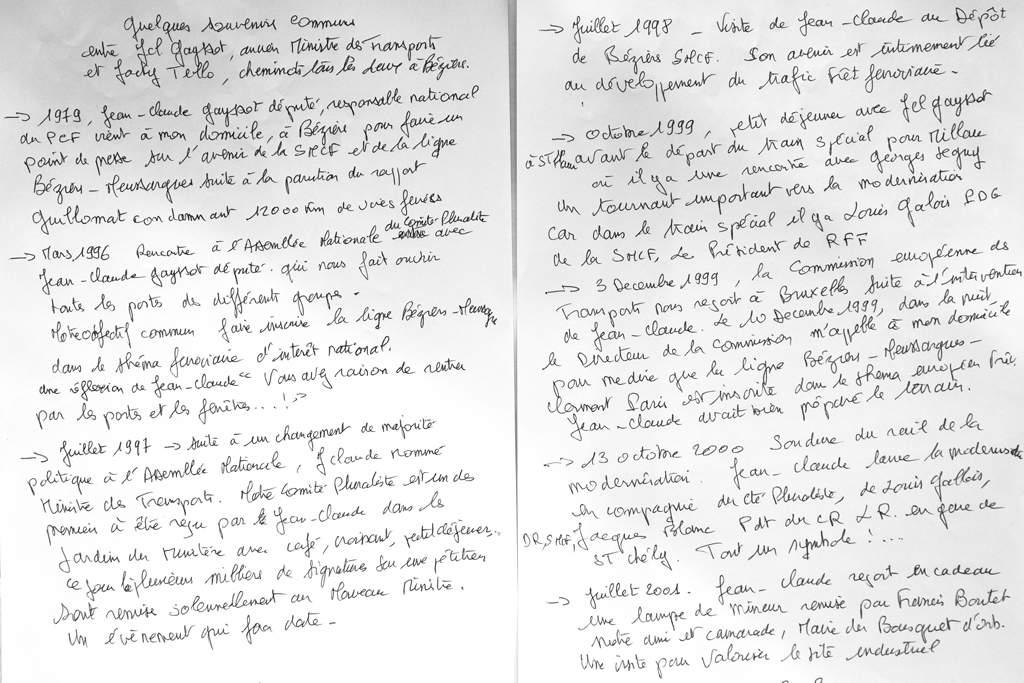 Quelques souvenirs communs
entre JCl Gayssot, ancien Ministre des Transports
et Jacky Tello, cheminots tous les deux à Béziers.
→ 1979, Jean-Claude Gayssot député, responsable national
du PCF vient à mon domicile, à Béziers pour faire un
point de presse sur l'avenir de la SNCF et de la ligne
Béziers-Neussargues suite à la parution du rapport
Guillomat condamnant 12000 Km de voies ferrées
→ Mars 1996 Rencontre à l'Assemblée Nationale du Comité Pluraliste avec
Jean-Claude Gayssot député. qui nous fait ouvrir
toutes les portes des différents groupes.
Notre objectif commun faire inscrire la ligne Béziers-Neussargues
dans le shéma ferroviaire d'intérêt national.
une réflexion de Jean-Claude "Vous avez raison de rentrer
par les portes et les fenêtres...!"
→ Juillet 1997 → suite à un changement de majorité
politique à l'Assemblée Nationale, J Claude nommé
Ministre des Transports. Notre Comité Pluraliste est un des
premiers à être reçu par Jean-Claude dans les
Jardins du Ministère avec café, croissant, petit déjeuner...
ce jour là plusieurs milliers de signatures sur une pétition
sont remises solennellement au Nouveau Ministre.
Un évènement qui fera date-
→ Juillet 1998 - Visite de Jean-Claude au Dépôt
de Béziers SNCF. Son avenir est intimement lié
au développement du trafic Frêt ferroviaire-
→ Octobre 1999, petit déjeuner avec JCl Gayssot
avant le départ du train spécial pour Millau
où il y a une rencontre avec Georges Séguy
Un tournant important vers la modernisation
car dans le train spécial il y a Louis Galois PDG
de la SNCF, Le Président de RFF
→ 3 Decembre 1999, la Commission européenne des
Transports nous reçoit à Bruxelles suite à l'intervention
de Jean-Claude. Le 10 Decembre 1999, dans la nuit
le Directeur de la Commission m'appelle à mon domicile
pour me dire que la ligne Béziers-Neussargues-
Clermont Paris est inscrite dans le shema européen Frêt.
Jean-Claude avait bien préparé le terrain.
→ 13 octobre 2000 Soudure du rail de la
modernisation. Jean-Claude lance la modernisation
en compagnie du Cté Pluraliste, de Louis Gallois,
DR, SNCF, Jacques Blanc Pdt du CR LR. en gare de
ST Chély. Tout un symbole!....
→ Juillet 2001. Jean-Claude reçoit en cadeau
une lampe de mineur remise par Francis Boutet
notre ami et camarade, Maire du Bousquet d'orb.
Une visite pour valoriser le site industriel